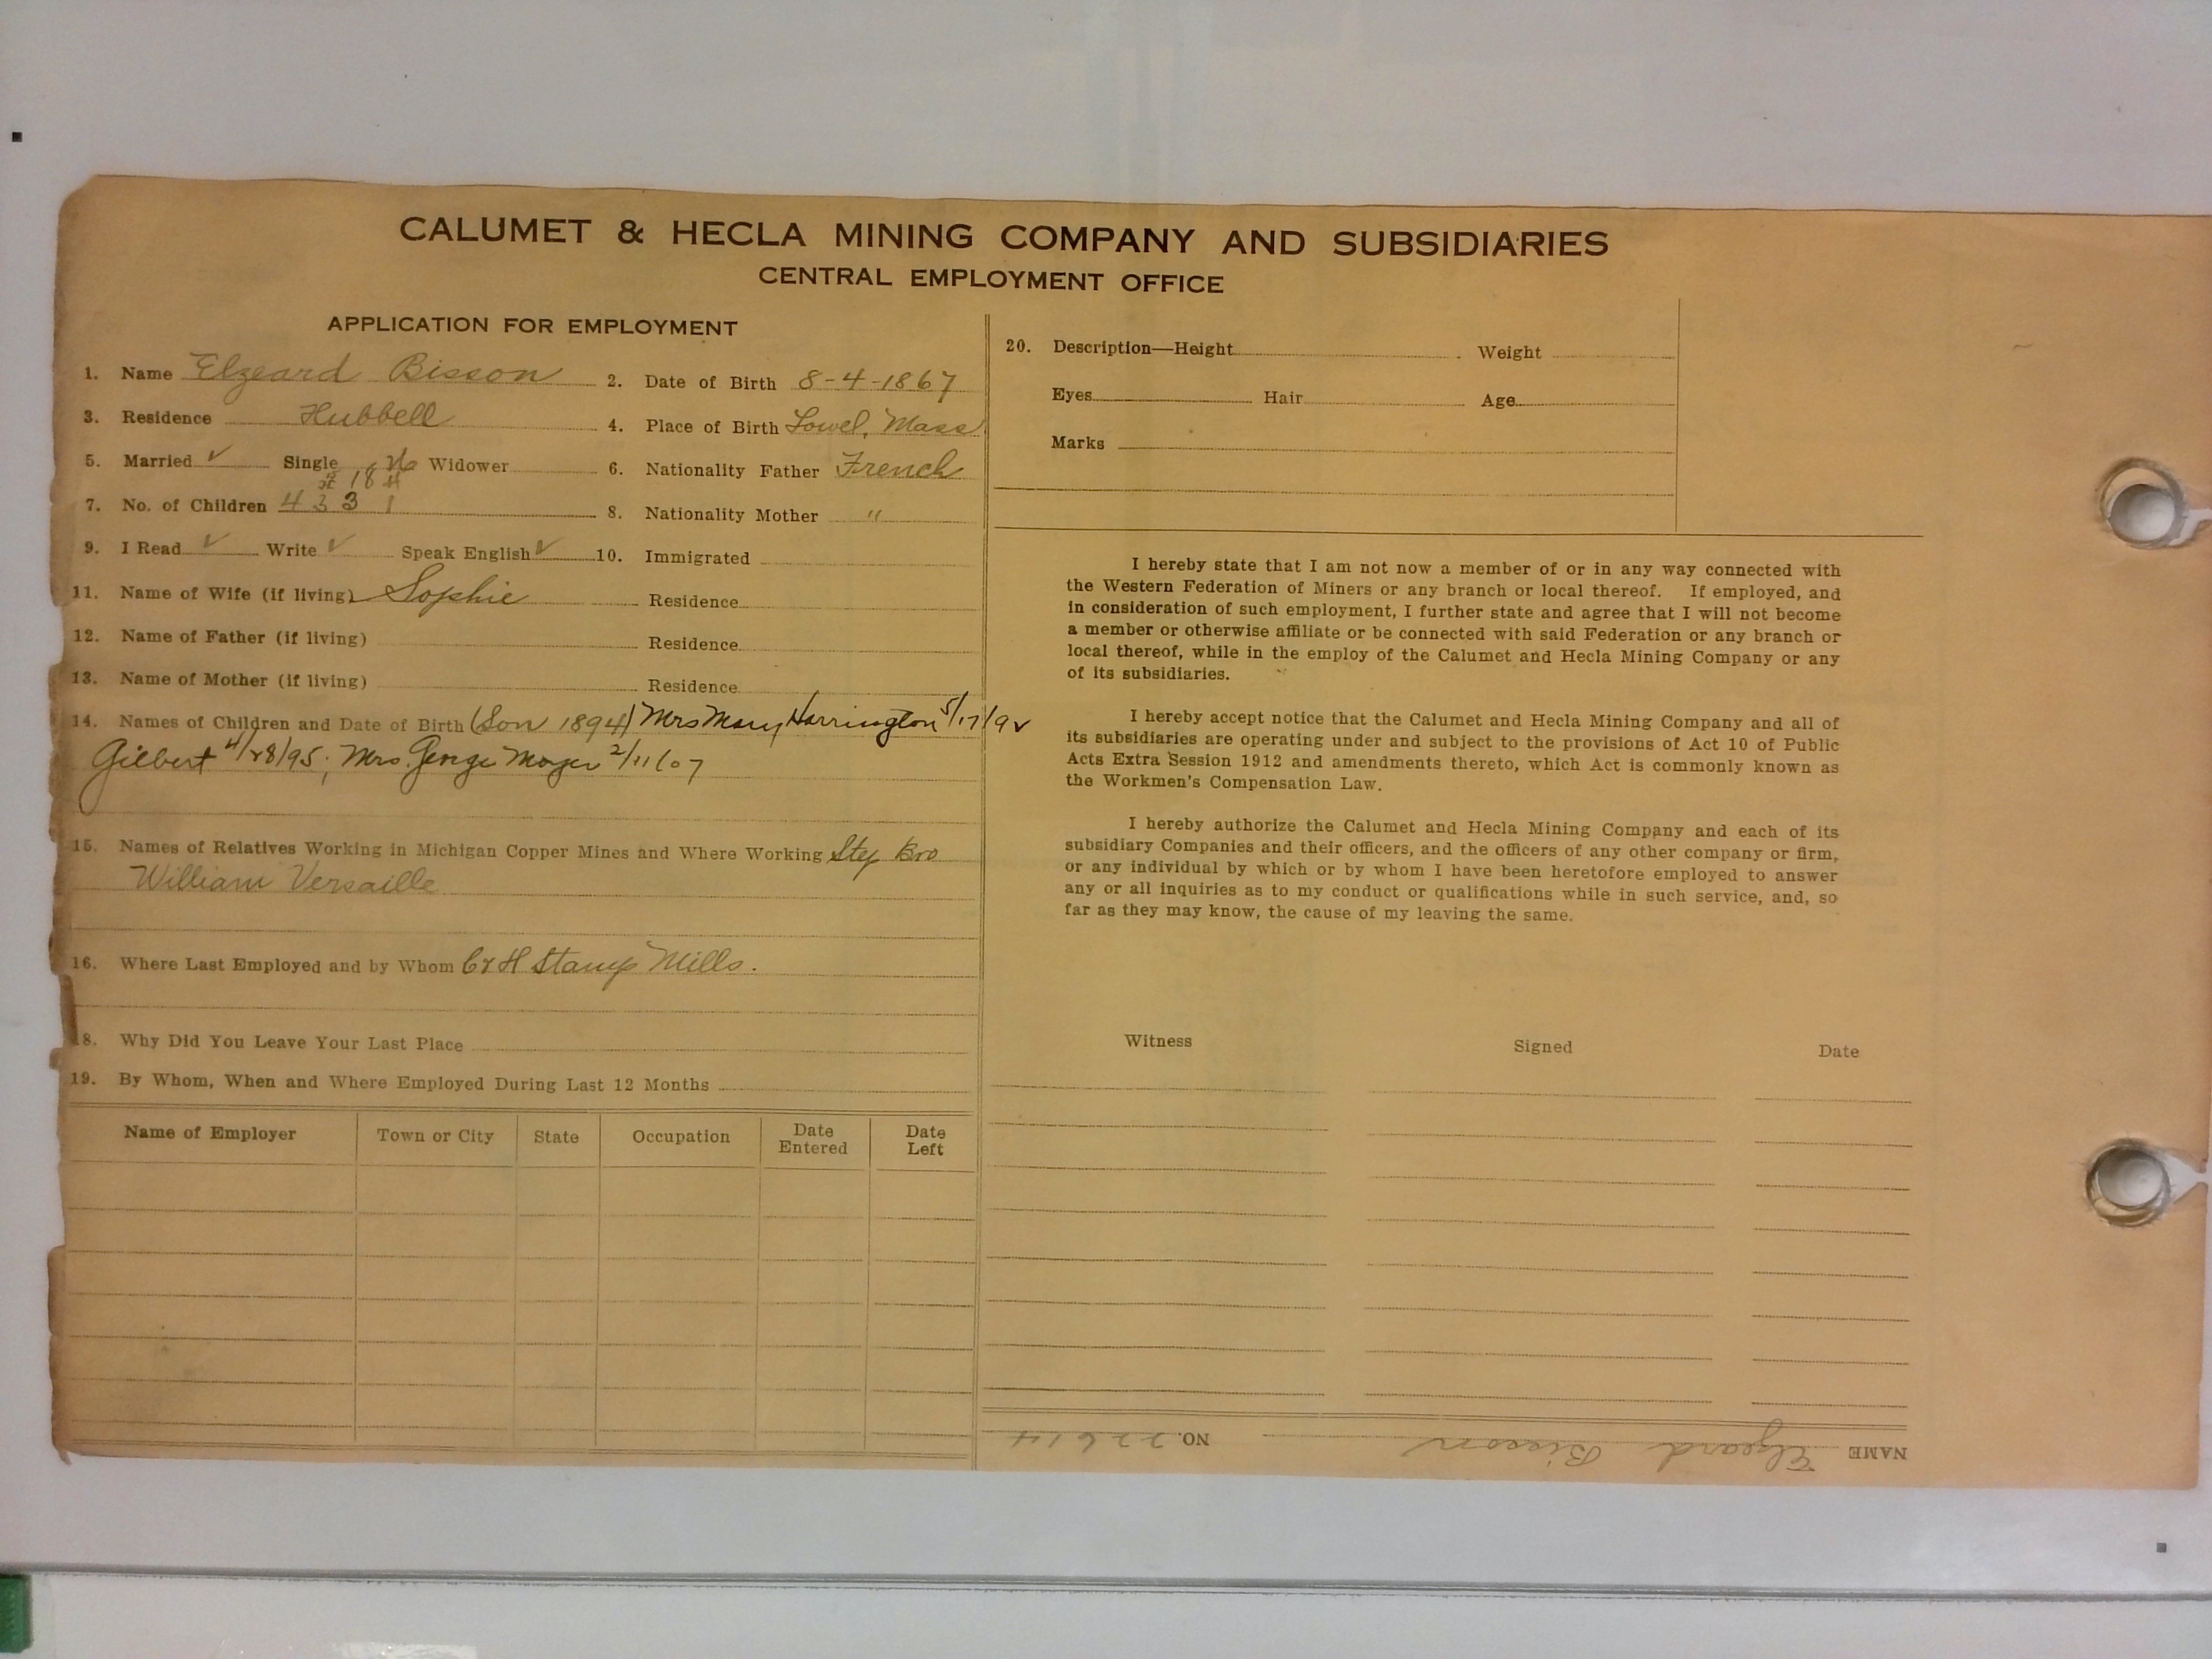 CALUMET & HECLA MINING COMPANY AND SUBSIDIARIES
CENTRAL EMPLOYMENT OFFICE
APPLICATION FOR EMPLOYMENT
1. Name Elzeard Bisson 2. Date of Birth 8-4-1867
3. Residence Hubbell 4. Place of Birth Lowel, Mass
5. Married ✓ Single Widower 6. Nationality Father French
18
7. No. of Children 4 3 3 1 8. Nationality Mother "
9. I Read ✓ Write ✓ Speak English ✓ 10. Immigrated
11. Name of Wife (if living) Sophie Residence
12. Name of Father (if living) Residence
13. Name of Mother (if living) Residence
14. Names of Children and Date of Birth (Son 1894) Mrs Mary Harrington 5/17/92
Gilbert 4/28/95; Mrs. George Moyer 2/11/07
15. Names of Relatives Working in Michigan Copper Mines and Where Working Step Bro
William Versaille
16. Where Last Employed and by Whom C & H Stamp Mills.
18. Why Did You Leave Your Last Place
19. By Whom, When and Where Employed During Last 12 Months
Name of Employer Town or City State Occupation Date Entered Date Left
20. Description—Height Weight
Eyes Hair Age
Marks
I hereby state that I am not now a member of or in any way connected with
the Western Federation of Miners or any branch or local thereof. If employed, and
in consideration of such employment, I further state and agree that I will not become
a member or otherwise affiliate or be connected with said Federation or any branch or
local thereof, while in the employ of the Calumet and Hecla Mining Company or any
of its subsidiaries.
I hereby accept notice that the Calumet and Hecla Mining Company and all of
its subsidiaries are operating under and subject to the provisions of Act 10 of Public
Acts Extra Session 1912 and amendments thereto, which Act is commonly known as
the Workmen's Compensation Law.
I hereby authorize the Calumet and Hecla Mining Company and each of its
subsidiary Companies and their officers, and the officers of any other company or firm,
or any individual by which or by whom I have been heretofore employed to answer
any or all inquiries as to my conduct or qualifications while in such service, and, so
far as they may know, the cause of my leaving the same.
Witness Signed Date
NAME Elzeard Bisson NO. 22614